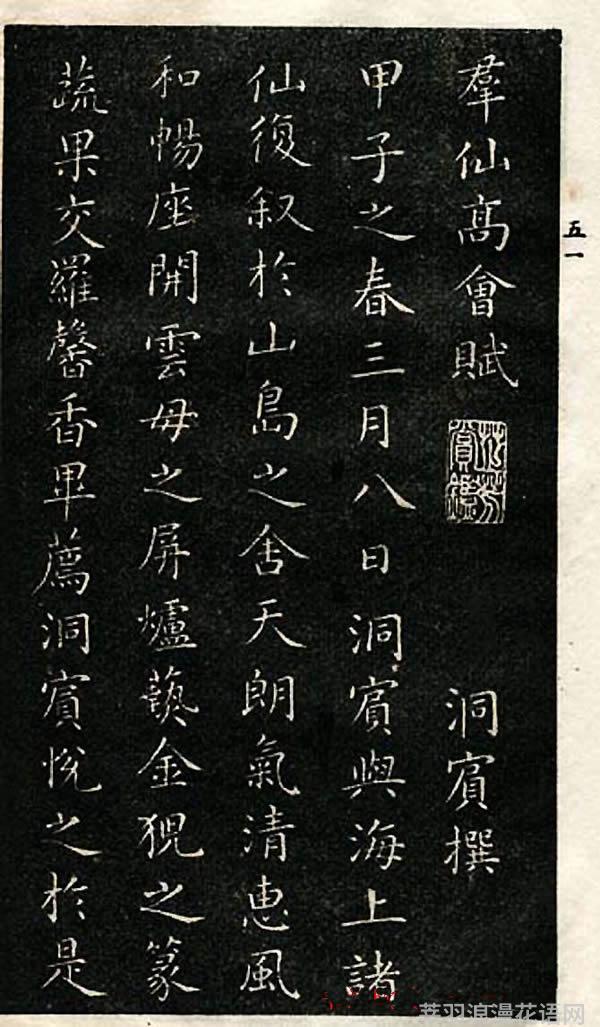 羣仙高會賦 洞賓撰
甲子之春三月八日洞賓與海上諸
仙復叙於山島之舍天朗氣清惠風
和暢座開雲母之屏爐藝金猊之篆
蔬果交羅馨香畢薦洞賓悅之於是
五一
莽羽浪漫花语网